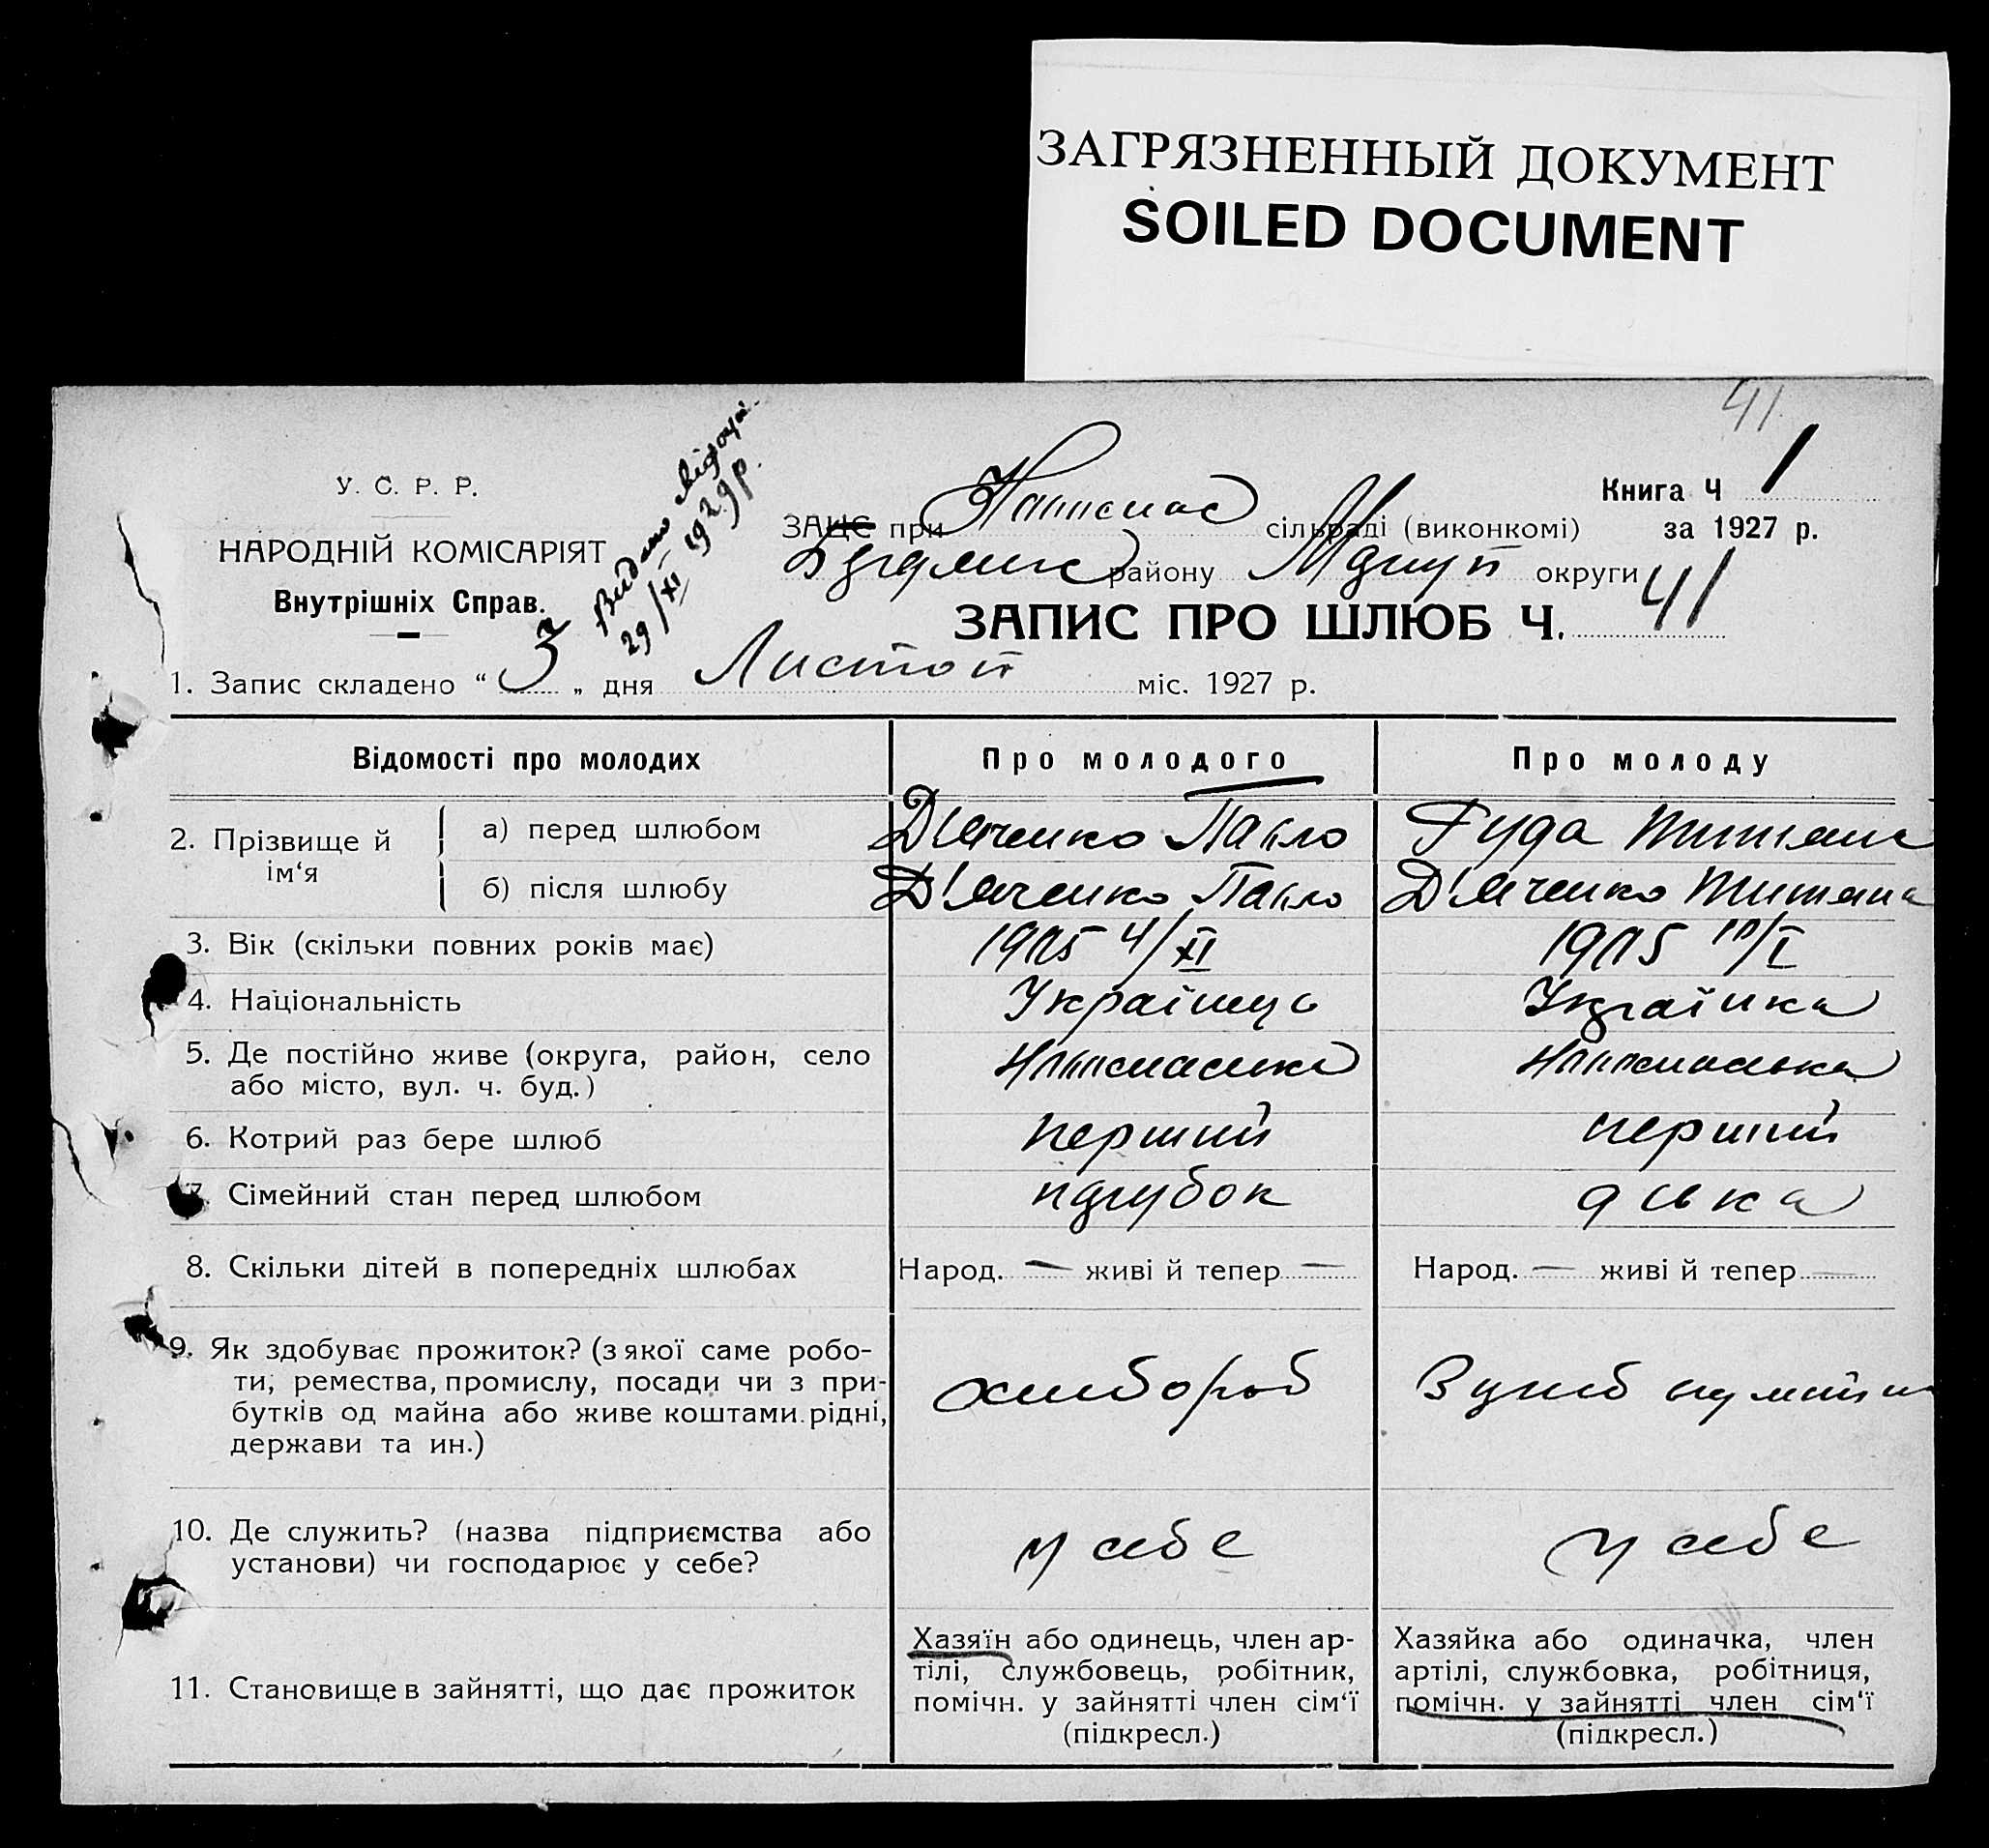 ЗАГРЯЗНЕННЫЙ ДОКУМЕНТ
SOILED DOCUMENT
41
У. С. Р. Р.
НАРОДНІЙ КОМІСАРІЯТ
Внутрішніх Справ.
Видано
29/XI 1929 р.
Книга Ч 1
за 1927 р.
ЗАЦС при сільраді (виконкомі)
району округи
ЗАПИС ПРО ШЛЮБ Ч. 41
1. Запис складено “ 3 „ дня Листоп міс. 1927 р.
Відомості про молодих Про молодого Про молоду
2. Прізвище й ім‘я
а) перед шлюбом Д'яченко Павло Гуда
б) після шлюбу Д'яченко Павло Д'яченко Титяна
3. Вік (скільки повних років має) 1905 4/XI 1905 10/I
4. Національність Українець Українка
5. Де постійно живе (округа, район, село
або місто, вул. ч. буд.)
6. Котрий раз бере шлюб перший перший
7. Сімейний стан перед шлюбом парубок дівка
8. Скільки дітей в попередніх шлюбах Народ. — живі й тепер — Народ. — живі й тепер —
9. Як здобуває прожиток? (з якої саме робо-
ти, ремества, промислу, посади чи з при-
бутків од майна або живе коштами рідні,
держави та ин.)
хлібороб
10. Де служить? (назва підприємства або
установи) чи господарює у себе?
у себе у себе
11. Становище в зайнятті, що дає прожиток
Хазяїн або одинець, член ар-
тілі, службовець, робітник,
помічн. у зайнятті член сім‘ї
(підкресл.)
Хазяйка або одиначка, член
артілі, службовка, робітниця,
помічн. у зайнятті член сім‘ї
(підкресл.)